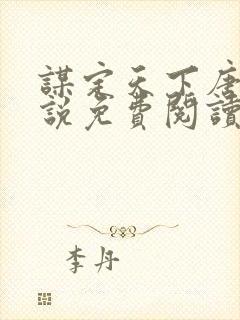 謀定天下唐
說免費閱讀
李丹